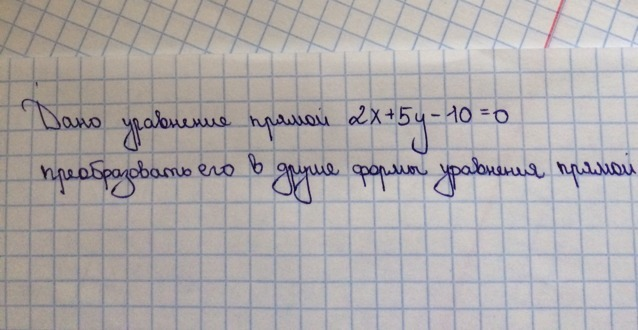 Дано уравнение прямой 2x+5y-10=0
преобразовать его в другие формы уравнения прямой